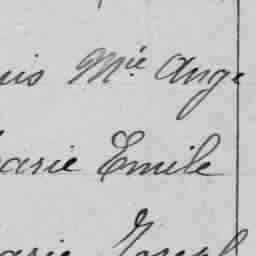 uis Mie Ange
arie Emile
arie Joseph